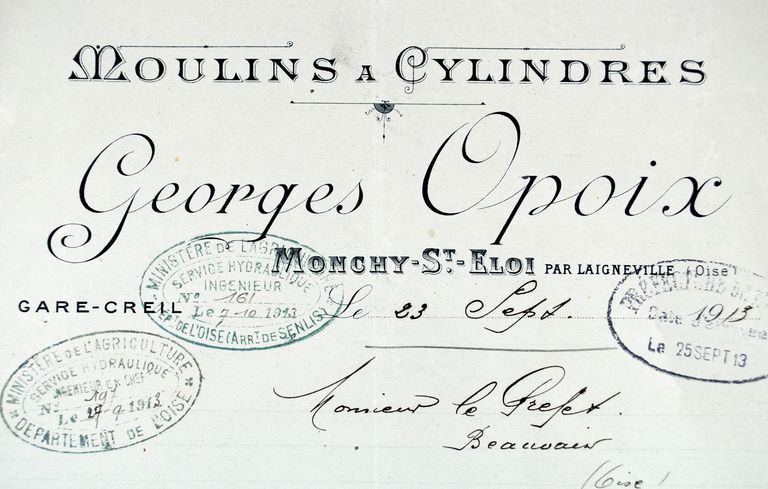 MOULINS A CYLINDRES
Georges Opoix
MONCHY-ST-ELOI PAR LAIGNEVILLE (Oise)
GARE-CREIL
Le 23 Sept. 1913
MINISTÈRE DE L'AGRICULTURE
SERVICE HYDRAULIQUE
INGENIEUR
No 161
Le 7-10 1913
DEPT DE L'OISE (ARRT DE SENLIS)
Date
La 25 SEPT 13
MINISTÈRE DE L'AGRICULTURE
SERVICE HYDRAULIQUE
INGENIEUR EN CHEF
No 197
Le 27-9 1913
DEPARTEMENT DE L'OISE
Monsieur le Prefet.
Beauvais
(Oise)